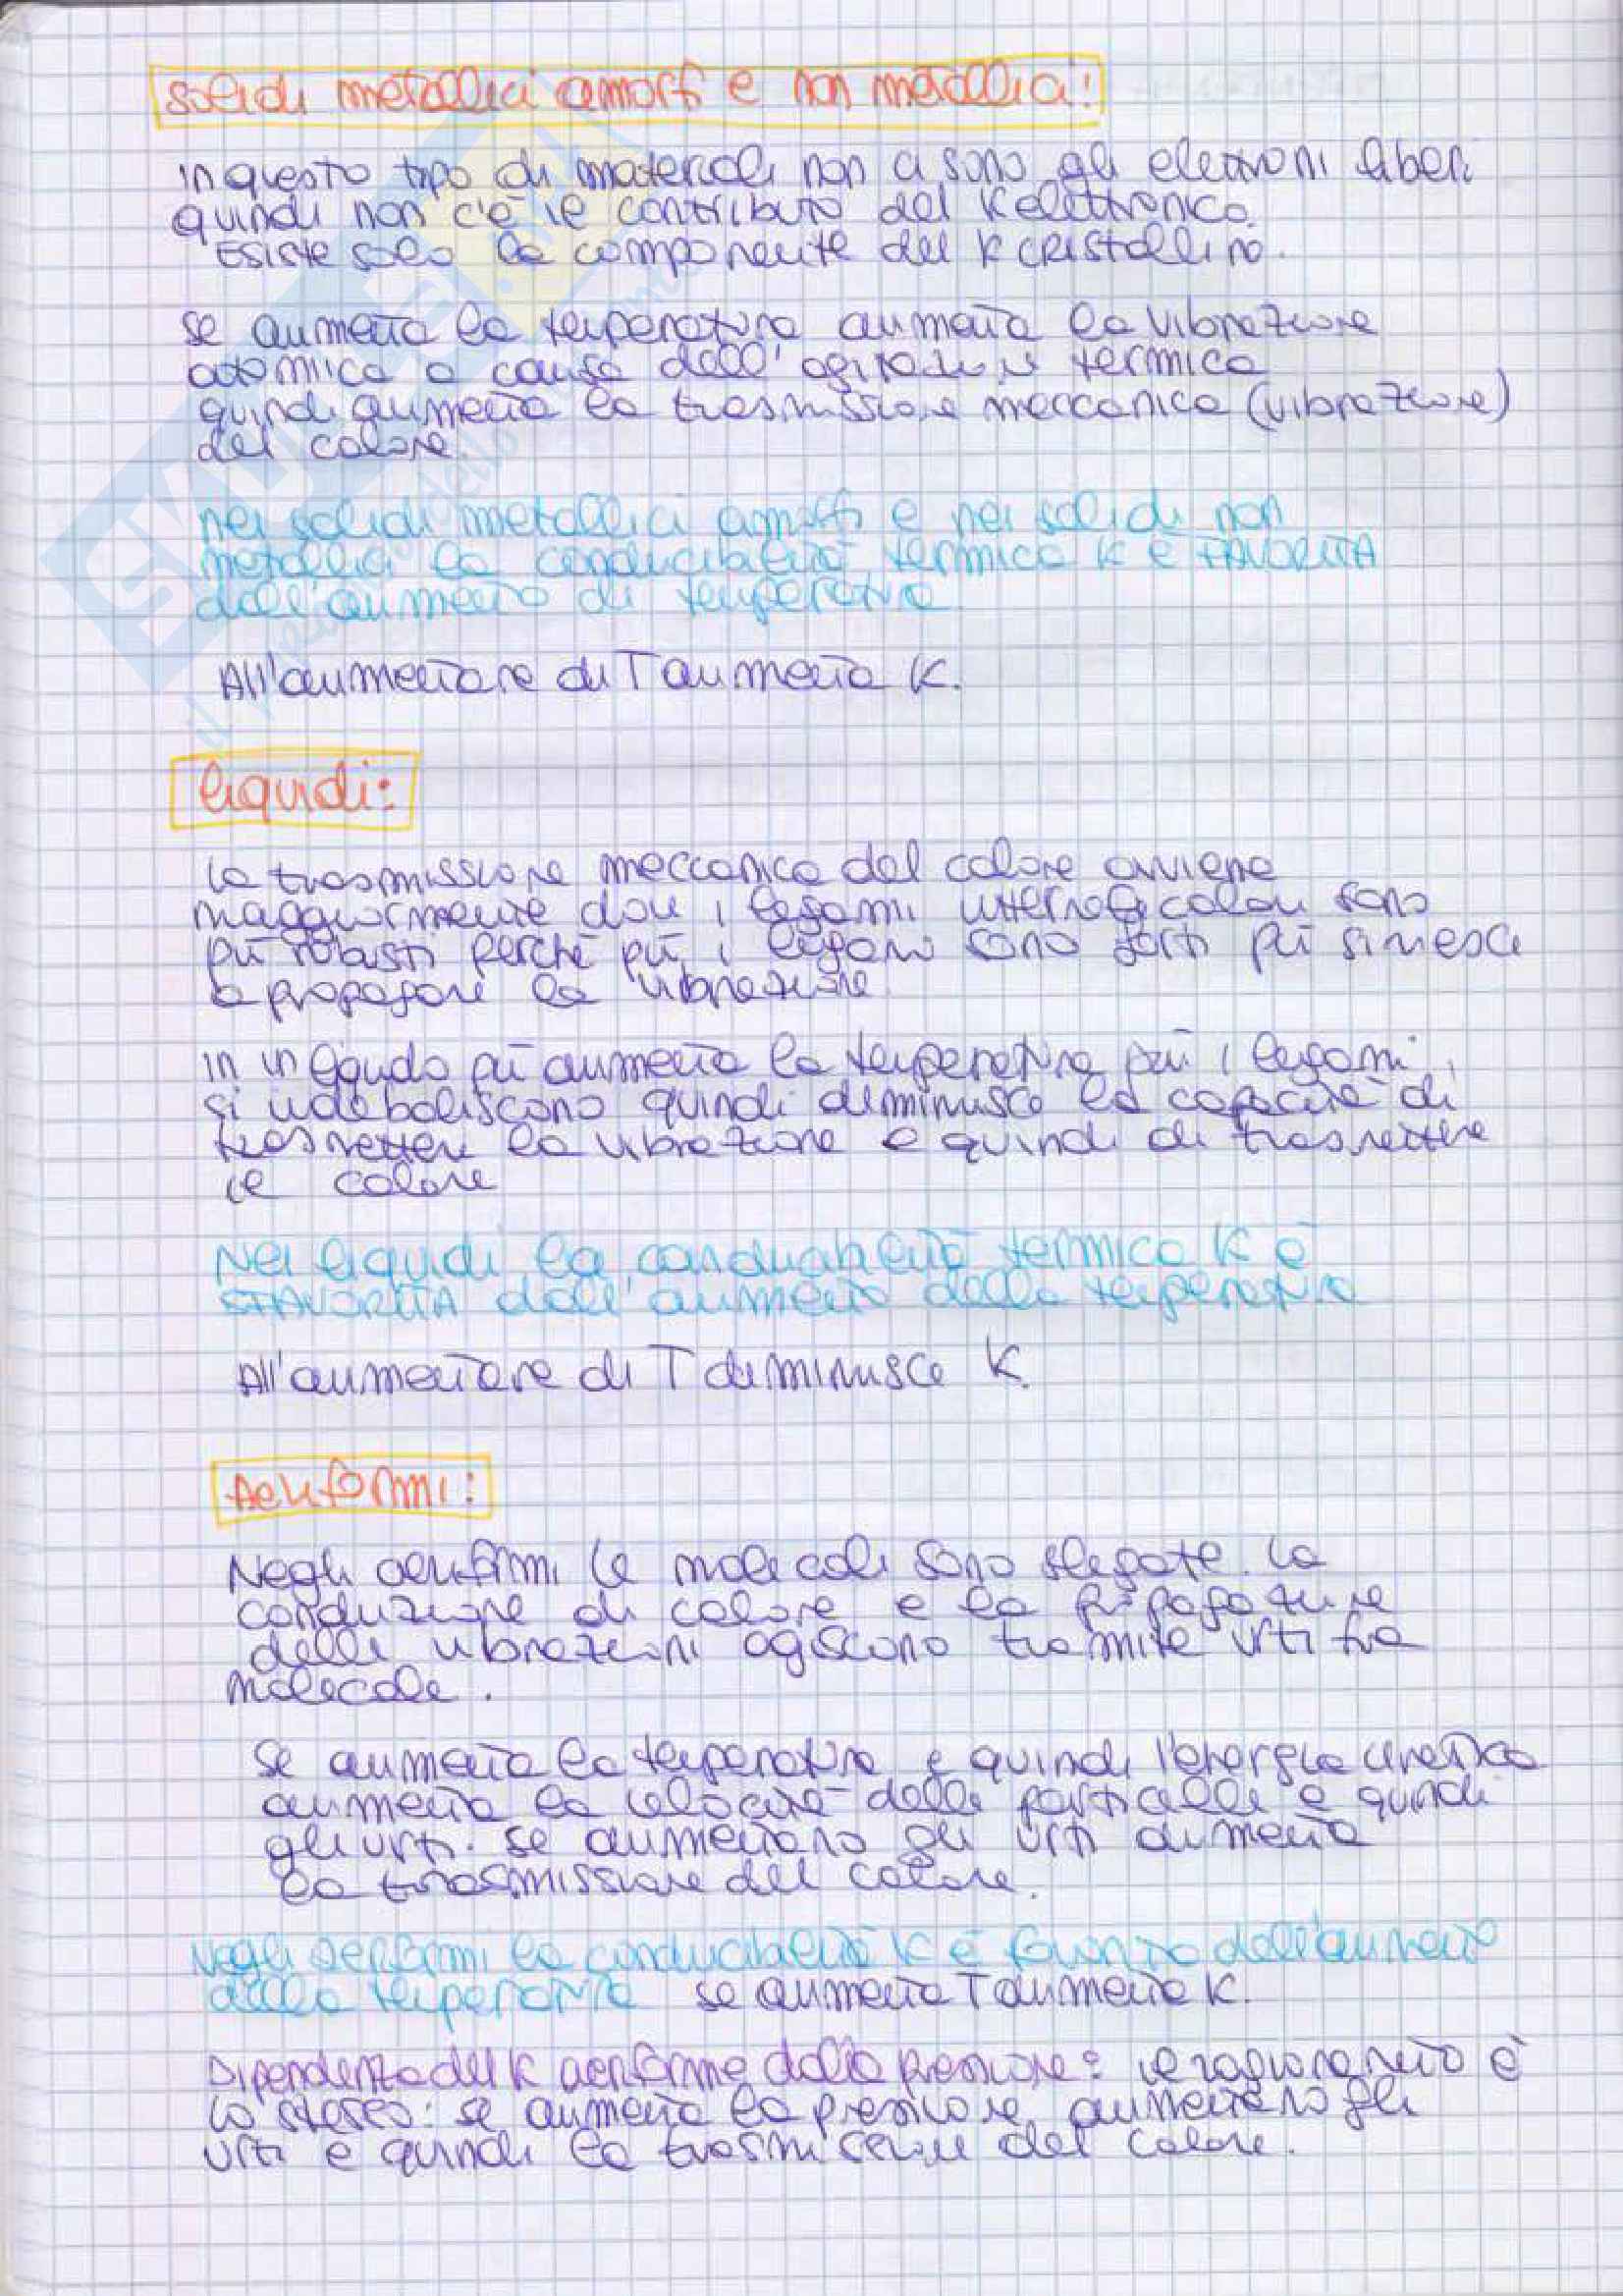 solidi metallici amorfi e non metallici:
in questo tipo di materiali non ci sono gli elettroni liberi
quindi non c'è il contributo del K elettronico.
Esiste solo la componente del K cristallino.
se aumenta la temperatura aumenta la vibrazione
atomica a causa dell'agitazione termica
quindi aumenta la trasmissione meccanica (vibrazione)
del calore.
nei solidi metallici amorfi e nei solidi non
metallici la conducibilità termica K è FAVORITA
dall'aumento di temperatura
All'aumentare di T aumenta K.
liquidi:
la trasmissione meccanica del calore avviene
maggiormente dove i legami intermolecolari sono
più robusti perché più i legami sono forti più si riesce
a propagare la vibrazione.
in un liquido più aumenta la temperatura più i legami
si indeboliscono quindi diminuisce la capacità di
trasmettere la vibrazione e quindi di trasmettere
il calore
Nei liquidi la conducibilità termica K è
SFAVORITA dall'aumento della temperatura
All'aumentare di T diminuisce K.
Aeriformi:
Negli aeriformi le molecole sono slegate. La
conduzione di calore e la propagazione
delle vibrazioni agiscono tramite urti tra
molecole.
Se aumenta la temperatura e quindi l'energia cinetica
aumenta la velocità delle particelle e quindi
gli urti. se aumentano gli urti aumenta
la trasmissione del calore.
Negli aeriformi la conducibilità K è favorita dall'aumento
della temperatura se aumenta T aumenta K.
Dipendenza del K aeriforme dalla pressione: il ragionamento è
lo stesso: se aumenta la pressione aumentano gli
urti e quindi la trasmissione del calore.